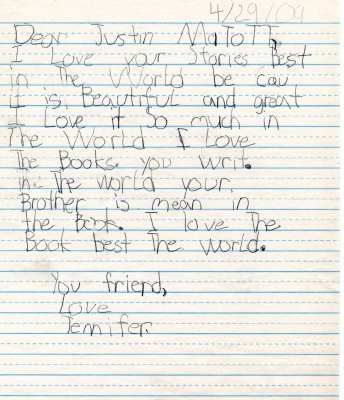 4/29/09
Dear Justin MaToTT
I Love your Stories Best
in The World be cau
it is Beautiful and great
I Love it So much in
The World I Love
The Books you writ.
in The world your
Brother is mean in
The Book. I love The
Book best The world.
You friend,
Love
Jennifer.